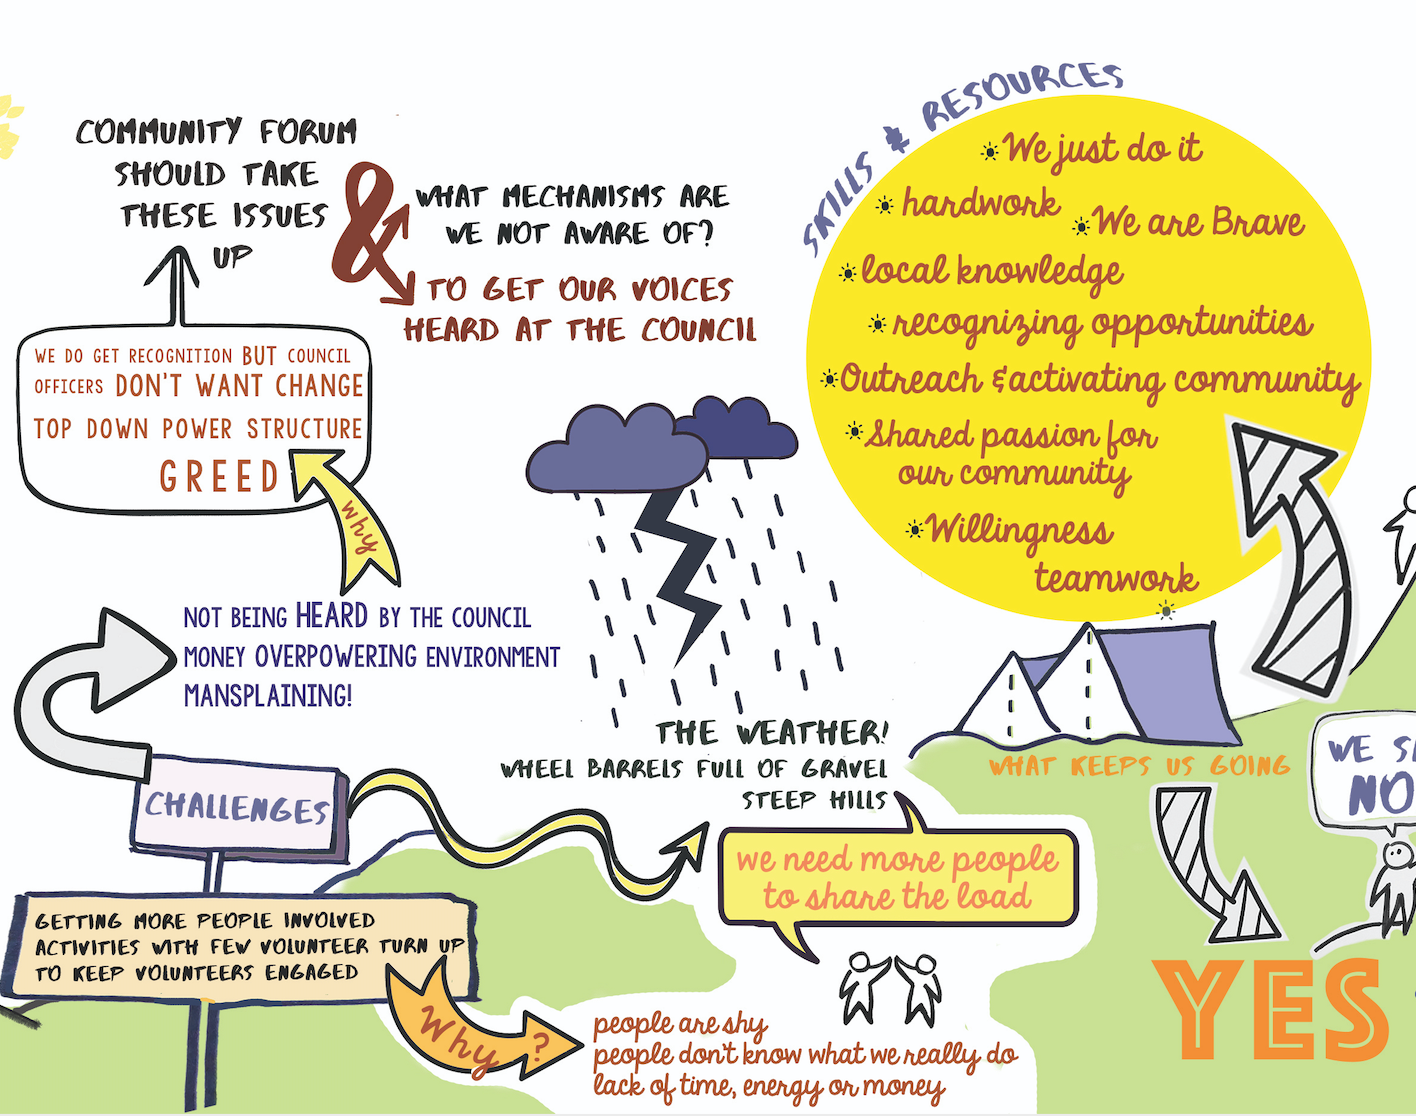 COMMUNITY FORUM
SHOULD TAKE
THESE ISSUES
UP
&
WHAT MECHANISMS ARE
WE NOT AWARE OF?
TO GET OUR VOICES
HEARD AT THE COUNCIL
WE DO GET RECOGNITION BUT COUNCIL
OFFICERS DON'T WANT CHANGE
TOP DOWN POWER STRUCTURE
GREED
why
NOT BEING HEARD BY THE COUNCIL
MONEY OVERPOWERING ENVIRONMENT
MANSPLAINING!
CHALLENGES
GETTING MORE PEOPLE INVOLVED
ACTIVITIES WITH FEW VOLUNTEER TURN UP
TO KEEP VOLUNTEERS ENGAGED
Why ?
people are shy
people don't know what we really do
lack of time, energy or money
THE WEATHER!
WHEEL BARRELS FULL OF GRAVEL
STEEP HILLS
we need more people
to share the load
SKILLS & RESOURCES
We just do it
hardwork
We are Brave
local knowledge
recognizing opportunities
Outreach & activating community
Shared passion for
our community
Willingness
teamwork
WHAT KEEPS US GOING
YES
WE
NO